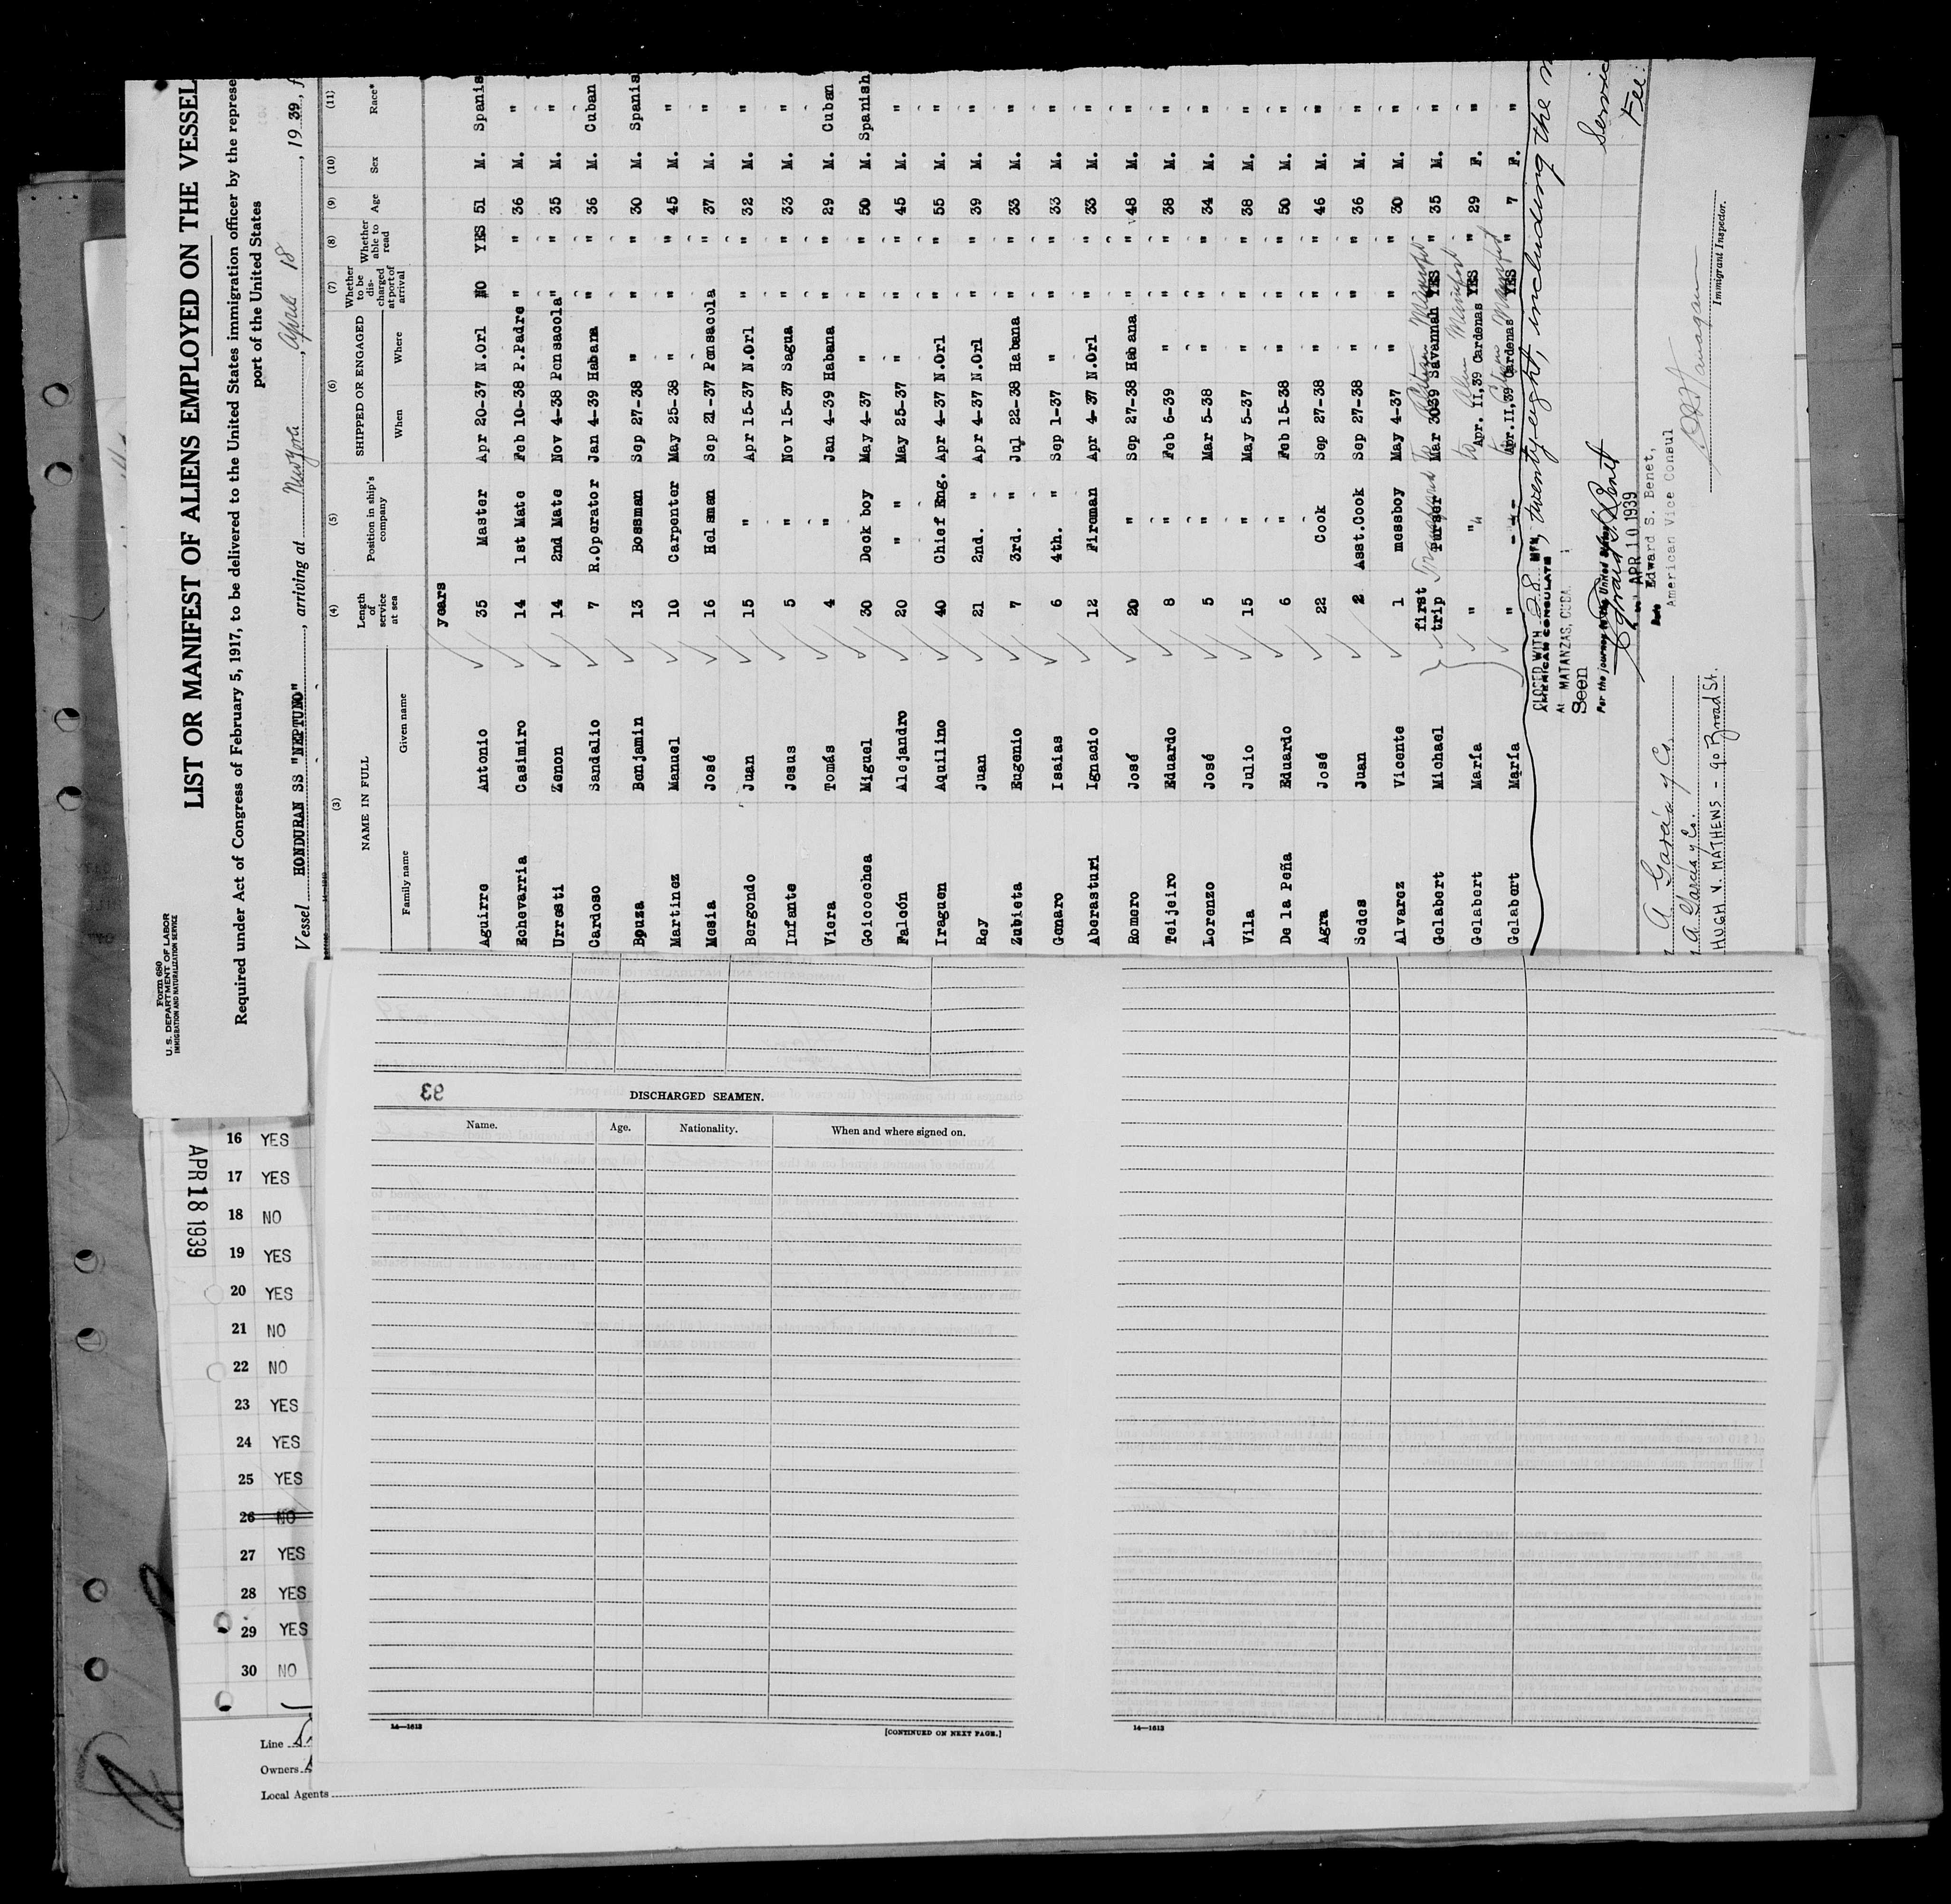 Form 680
U. S. DEPARTMENT OF LABOR
IMMIGRATION AND NATURALIZATION SERVICE
LIST OR MANIFEST OF ALIENS EMPLOYED ON THE VESSEL
Required under Act of Congress of February 5, 1917, to be delivered to the United States immigration officer by the represe
port of the United States
Vessel HONDURAN SS "NEPTUNO", arriving at New York, April 18, 1939, f
(3) (4) (5) (6) (7) (8) (9) (10) (11)
NAME IN FULL Length of service at sea Position in ship's company SHIPPED OR ENGAGED Whether to be discharged at port of arrival Whether able to read Age Sex Race*
Family name Given name When Where
years
Aguirre Antonio 35 Master Apr 20-37 N.Orl NO YES 51 M. Spanis
Echevarria Casimiro 14 1st Mate Feb 10-38 P.Padre " " 36 M. "
Urresti Zenon 14 2nd Mate Nov 4-38 Pensacola " " 35 M. "
Cardoso Sandalio 7 R.Operator Jan 4-39 Habana " " 36 M. Cuban
Bouza Benjamin 13 Bossman Sep 27-38 " " " 30 M. Spanis
Martinez Manuel 10 Carpenter May 25-38 " " " 45 M. "
Mesia José 16 Helsman Sep 21-37 Pensacola " " 37 M. "
Bergondo Juan 15 " Apr 15-37 N.Orl " " 32 M. "
Infante Jesus 5 " Nov 15-37 Sagua " " 33 M. "
Viera Tomás 4 " Jan 4-39 Habana " " 29 M. Cuban
Goicoechea Miguel 30 Deck boy May 4-37 " " " 50 M. Spanish
Falcón Alejandro 20 " " May 25-37 " " " 45 M. "
Iraguen Aquilino 40 Chief Eng. Apr 4-37 N.Orl " " 55 M. "
Rey Juan 21 2nd. " Apr 4-37 N.Orl " " 39 M. "
Zubieta Eugenio 7 3rd. " Jul 22-38 Habana " " 33 M. "
Genaro Isaias 6 4th. " Sep 1-37 " " " 33 M. "
Aberasturi Ignacio 12 Fireman Apr 4-37 N.Orl " " 33 M. "
Romero José 20 " Sep 27-38 Habana " " 48 M. "
Teijeiro Eduardo 8 " Feb 6-39 " " " 38 M. "
Lorenzo José 5 " Mar 5-38 " " " 34 M. "
Vila Julio 15 " May 5-37 " " " 38 M. "
De la Peña Eduardo 6 " Feb 15-38 " " " 50 M. "
Agra José 22 Cook Sep 27-38 " " " 46 M. "
Sedes Juan 2 Asst.Cook Sep 27-38 " " " 36 M. "
Alvarez Vicente 1 messboy May 4-37 " " " 30 M. "
Gelabert Michael first trip Purser Mar 3039 Savannah YES " 35 M. "
Gelabert María " " Apr. II,39 Cardenas YES " 29 F. "
Gelabert María " --- Apr.II,39 Cardenas YES " 7 F. "
Transferred to Alien Manifest
to Alien Manifest
to Alien Manifest
CLOSED WITH 28, twenty-eight, including the
AMERICAN CONSULATE
At MATANZAS, CUBA.
Seen
For the journey to the United States
Edward S. Benet
Date APR 10 1939
Edward S. Benet,
American Vice Consul
Service
Fee:
A. García y Co.
A. García y Co.
HUGH V. MATHEWS - 90 Broad St.
Immigrant Inspector.
APR 18 1939
16 YES
17 YES
18 NO
19 YES
20 YES
21 NO
22 NO
23 YES
24 YES
25 YES
26 NO
27 YES
28 YES
29 YES
30 NO
Line
Owners
Local Agents
93
DISCHARGED SEAMEN.
Name. Age. Nationality. When and where signed on.
14—1613
[CONTINUED ON NEXT PAGE.]
14—1613